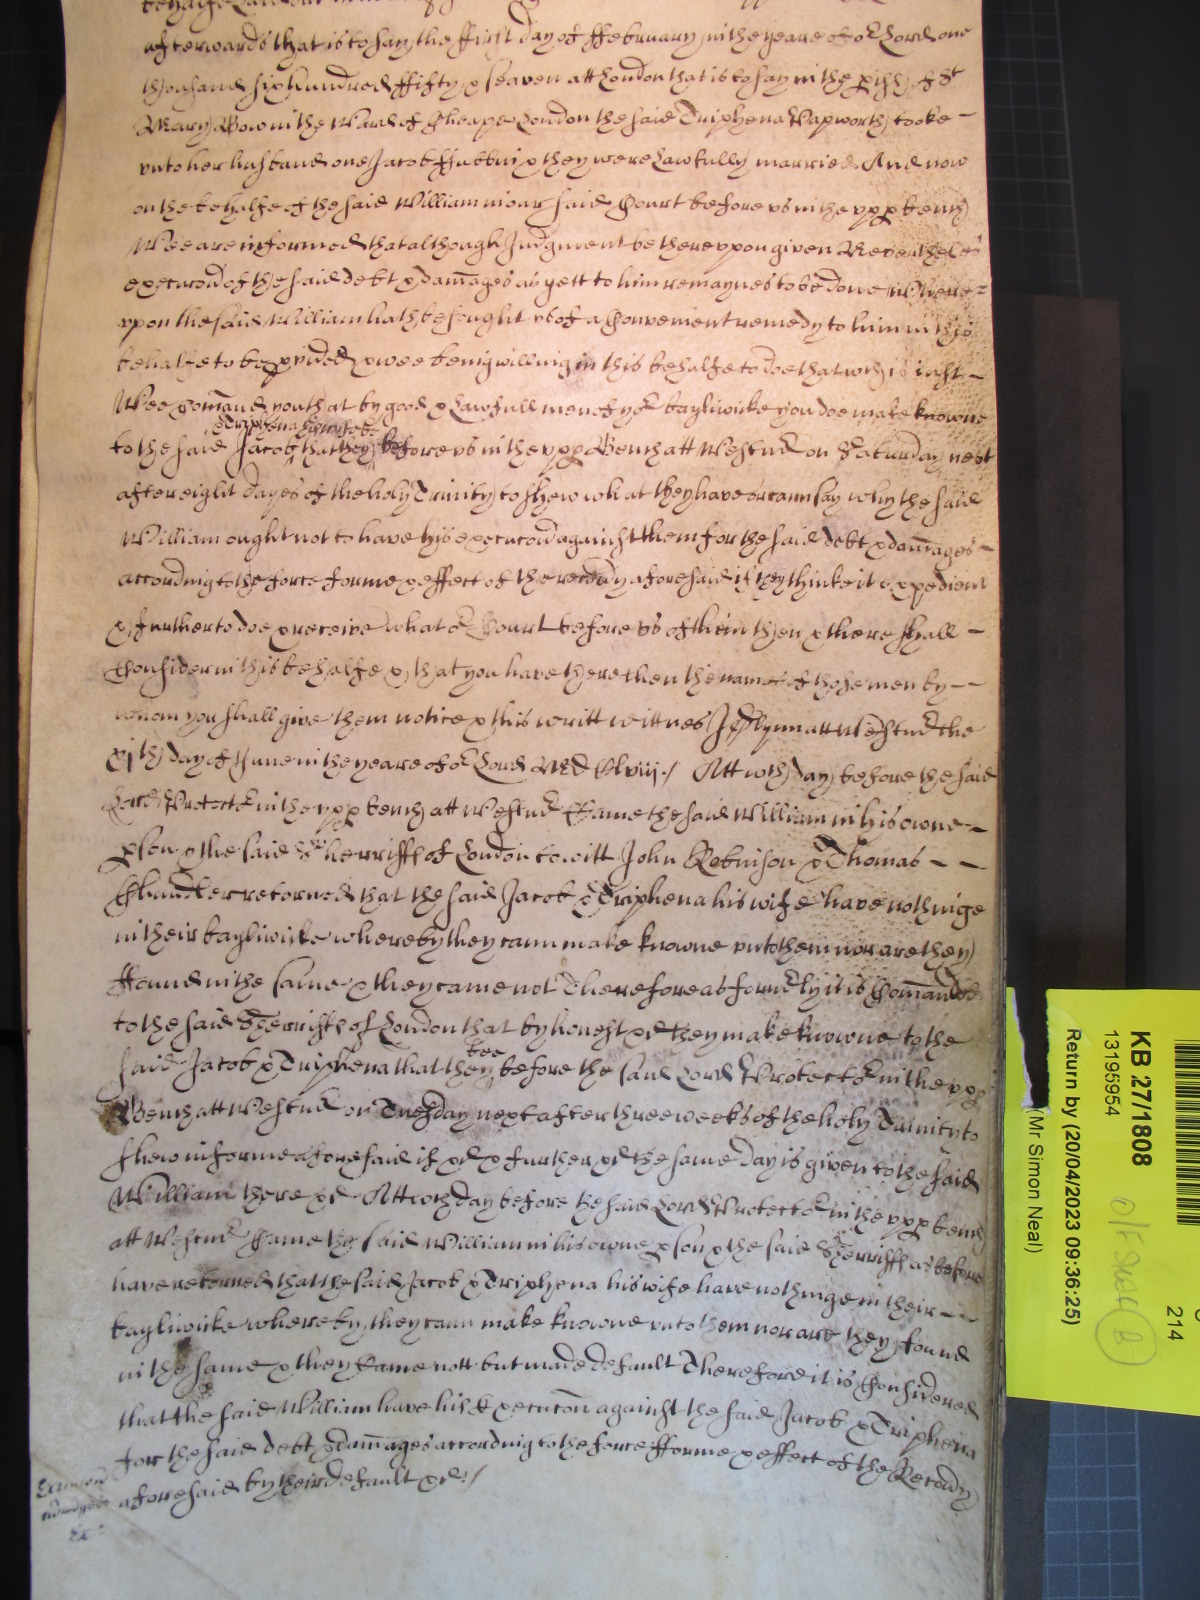 behalfe
afterwards that is to say the ffirst day of ffebruary in the yeare of or Lord one
thousand six hundred ffifty & seaven att London that is to say in the pish of St
Mary Bow in the Ward of Cheape London the said Triphena Papworth tooke -
unto her husband one Jacob & they were Lawfully married And now
on the behalfe of the said William in our said Court before us in the upp bench
Wee are informed that although Judgment be thereuppon given Neverthelesse
execucon of the said debt & damages as yett to him remaynes to be done Where=
uppon the said William hath besought us of a Convenient remedy to him in this
behalfe to be pvided & wee being willing in this behalfe to doe that wch is iust -
Wee Comand you that by good & Lawfull men of yor bayliwicke you doe make knowne
& Triphena his wife be
to the said Jacob that they before us in the upp Bench att Westmr on Saturday next
after eight dayes of the holy Trinity to shew what they have or cann say why the said
William ought not to have his execucon against them for the said debt & damages -
according to the force forme & effect of the recovry aforesaid if they thinke it expedient
& further to doe & receive what or Court before us of them then & there shall -
Consider in this behalfe & that you have there then the names of those men by - -
whom you shall give them notice & this writt wittnes J Glynn att Westmr the
xjth day of June in the yeare of or Lord MDClviij./ Att wch day before the said
Lord Protector in the upp bench att Westmr Came the said William in his owne -
pson & the said Sherriffe of London to witt John Robinson & Thomas - -
Chandler retorned that the said Jacob & Triphena his wife have nothinge
in their bayliwicke whereby they cann make knowne unto them nor are they
ffound in the same & they came not Therefore as formerly it is Comanded
to the said Sherriffe of London that by honest &c they make knowne to the
bee
said Jacob & Triphena that they before the said Lord Protector in the upp
Bench att Westmr on Tuesday next after three weeks of the holy Trinity to
shew in forme aforesaid if &c & further &c the same day is given to the said
William there &c Att wch day before the said Lord Protector in the upp bench
att Westmr Came the said William in his owne pson & the said Sherriffe as before
have retorned that the said Jacob & Triphena his wife have nothinge in their - -
bayliwicke whereby they cann make knowne unto them nor are they found
in the same & they Came nott but made default Therefore it is Considered
that the said William have his Execucon against the said Jacob & Triphena
for the said debt & damages according to the force fforme & effect of the Recovry
aforesaid by their default &c./
KB 27/1808
13195954
Return by (20/04/2023 09:36:25)
(Mr Simon Neal)
214